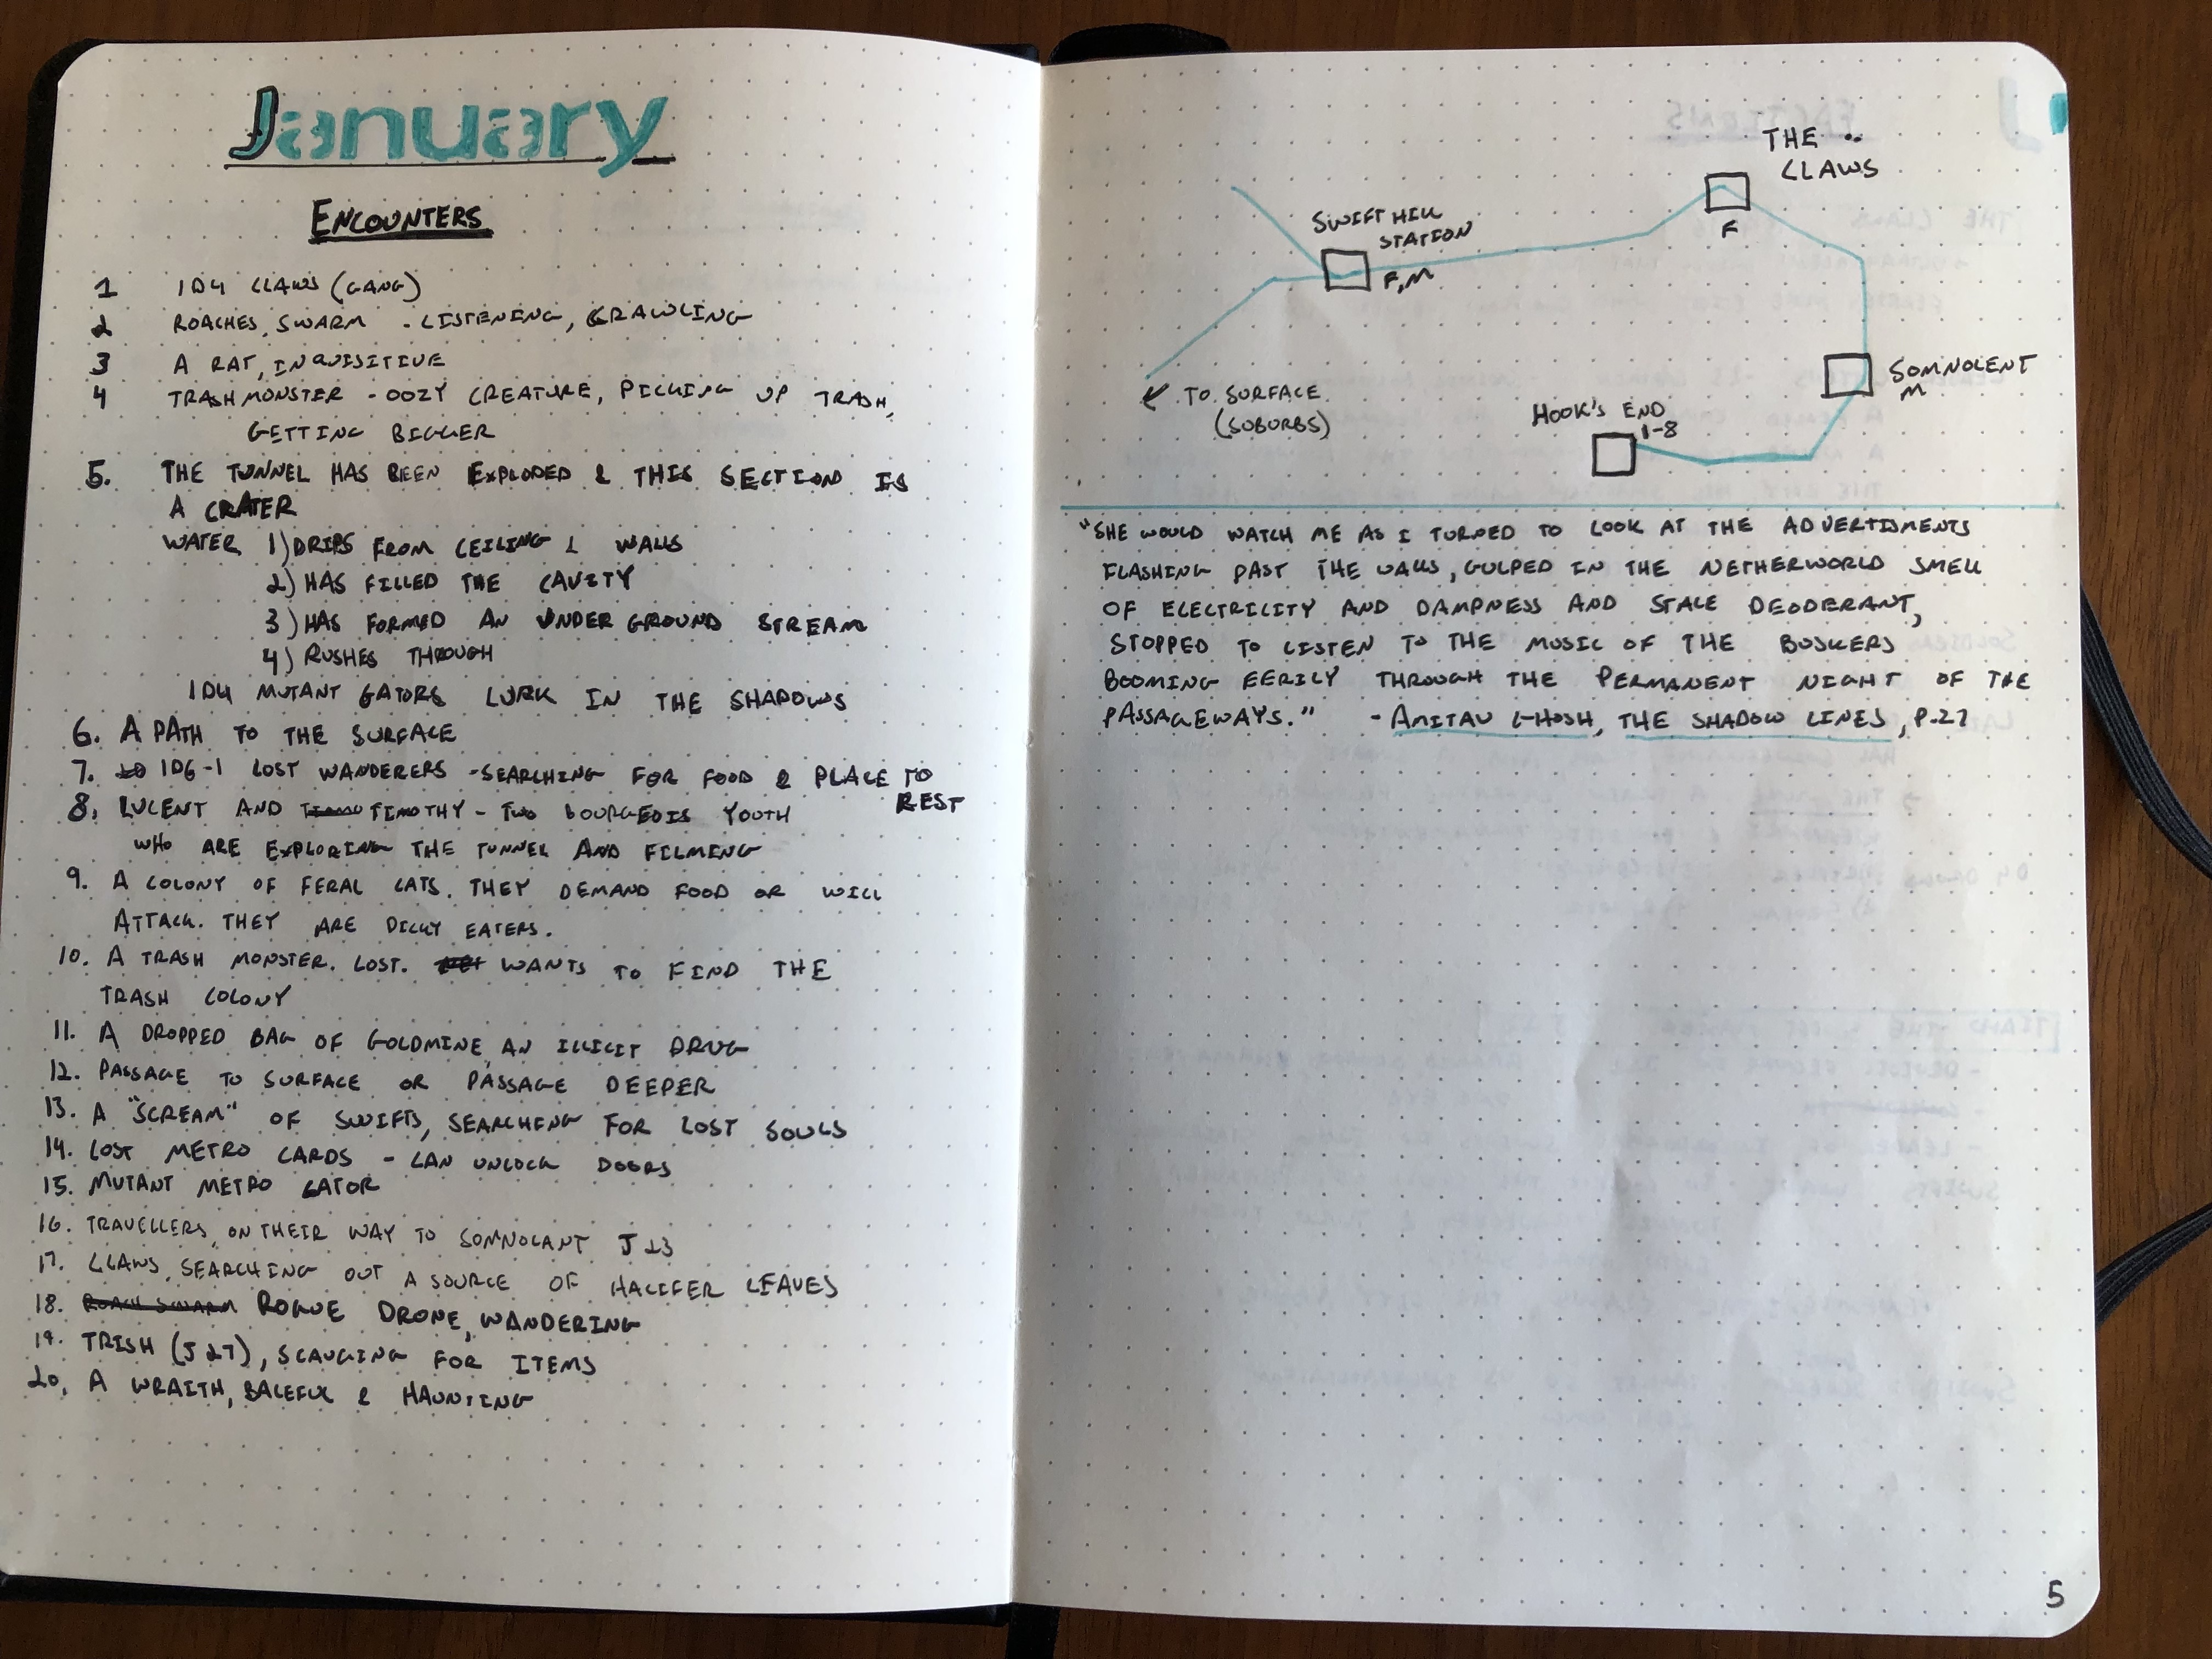 January
ENCOUNTERS
1 1D4 CLAWS (GANG)
2 ROACHES, SWARM - LISTENING, CRAWLING
3 A RAT, INQUISITIVE
4 TRASHMONSTER - OOZY CREATURE, PICKING UP TRASH,
GETTING BIGGER
5. THE TUNNEL HAS BEEN EXPLODED & THIS SECTION IS
A CRATER
WATER 1) DRIPS FROM CEILING & WALLS
2) HAS FILLED THE CAVITY
3) HAS FORMED AN UNDERGROUND STREAM
4) RUSHES THROUGH
1D4 MUTANT GATORS LURK IN THE SHADOWS
6. A PATH TO THE SURFACE
7. 1D6-1 LOST WANDERERS - SEARCHING FOR FOOD & PLACE TO
REST
8. LUCENT AND TIMOTHY - TWO BOURGEOIS YOUTH
WHO ARE EXPLORING THE TUNNEL AND FILMING
9. A COLONY OF FERAL CATS. THEY DEMAND FOOD OR WILL
ATTACK. THEY ARE PICKY EATERS.
10. A TRASH MONSTER. LOST. WANTS TO FIND THE
TRASH COLONY
11. A DROPPED BAG OF GOLDMINE, AN ILLICIT DRUG
12. PASSAGE TO SURFACE OR PASSAGE DEEPER
13. A "SCREAM" OF SWIFTS, SEARCHING FOR LOST SOULS
14. LOST METRO CARDS - CAN UNLOCK DOORS
15. MUTANT METRO GATOR
16. TRAVELLERS, ON THEIR WAY TO SOMNOLANT J23
17. CLAWS, SEARCHING OUT A SOURCE OF HALIFER LEAVES
18. ROACH SWARM ROGUE DRONE, WANDERING
19. TRISH (J27), SCAVGING FOR ITEMS
20. A WRAITH, BALEFUL & HAUNTING
THE
CLAWS
F
SWIFT HILL
STATION
F,M
SOMNOLENT
M
TO SURFACE
(SUBURBS)
HOOK'S END
1-8
"SHE WOULD WATCH ME AS I TURNED TO LOOK AT THE ADVERTISMENTS
FLASHING PAST THE WALLS, GULPED IN THE NETHERWORLD SMELL
OF ELECTRICITY AND DAMPNESS AND STALE DEODERANT,
STOPPED TO LISTEN TO THE MUSIC OF THE BUSKERS
BOOMING EERILY THROUGH THE PERMANENT NIGHT OF THE
PASSAGEWAYS." - AMITAV GHOSH, THE SHADOW LINES, P.27
5